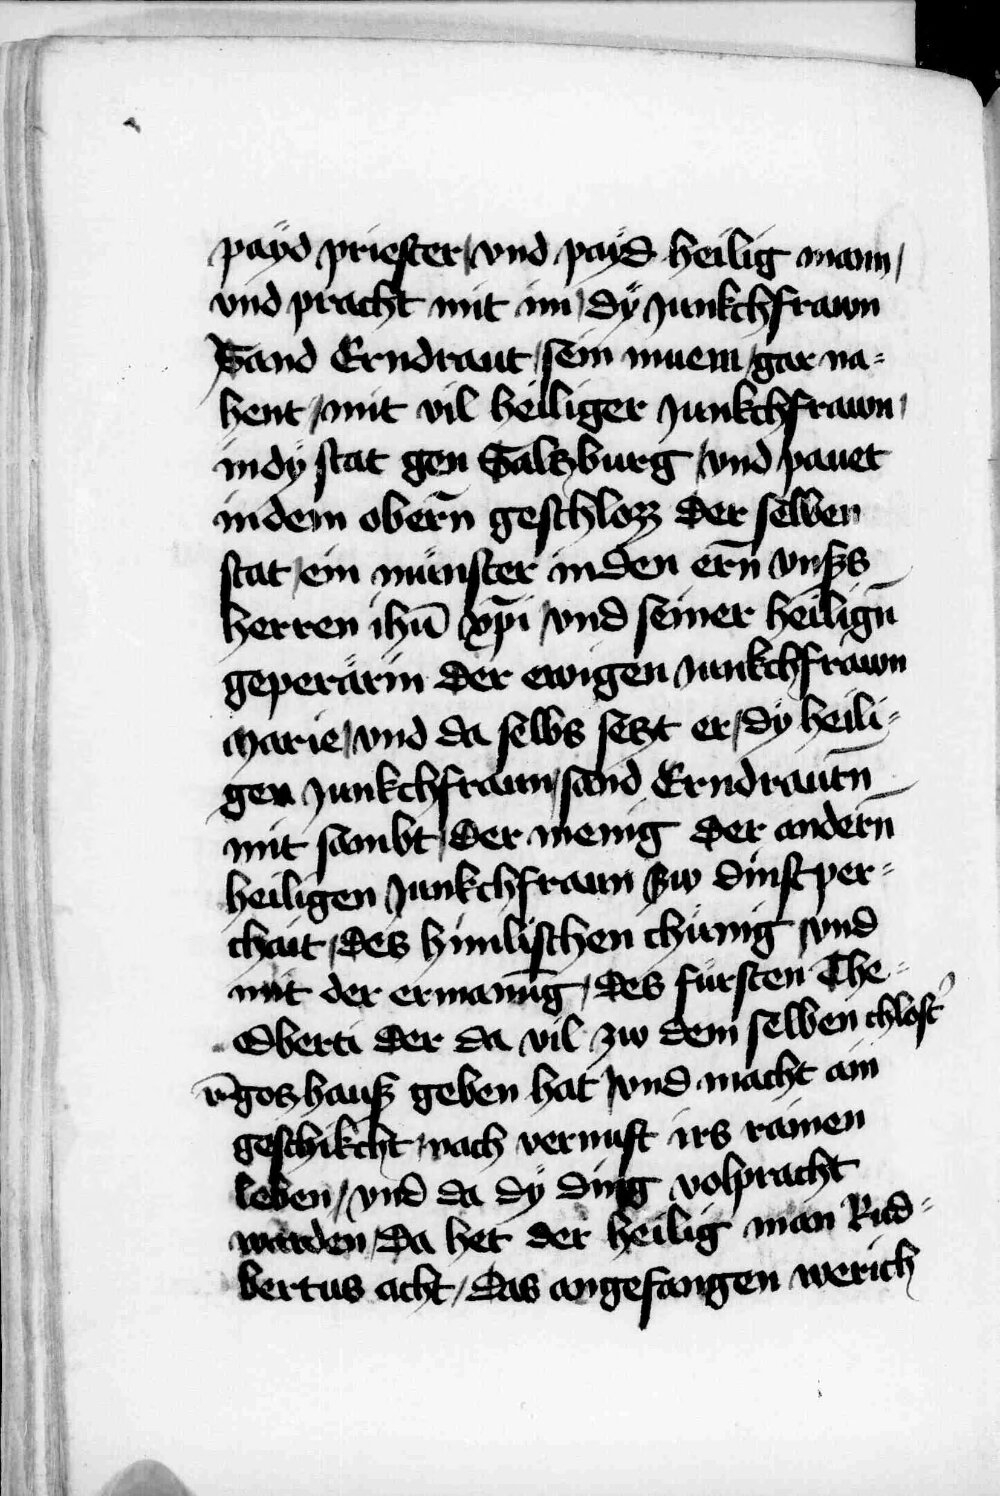 payd priester / vnd payd heilig mann /
vnd pracht mit im / dÿ Junkchfrawn
Sand Erndraut / sein muem / gar na=
hent / mit vil heiliger Junkchfrawn /
in dÿ stat gen Saltzburg / vnd pauet
in dem obern̄ geschlozz der selben
stat / ein münster in den ern̄ vnsers
herren ihū xp̄i / vnd seiner heilign̄
gepärärin der ewigen Junkchfrawn
Marie / vnd da selbs setzt er / dÿ heili=
gen Junkchfraun / sand Erndrautn̄
mit sambt / der menig der andern̄
heiligen Junkchfraun zw dinstper=
chait / des himlischen chünig / vnd
mit der ermanūg / des fürsten The=
odberti der da vil zw dem selben chlost'
v̄ goczhauß geben hat / vnd macht ain
geschikcht / nach vernuft irs rainen
leben / vnd da dÿ ding volpracht
warden / Da het der heilig man Rud=
bertus acht / das angefangen werich